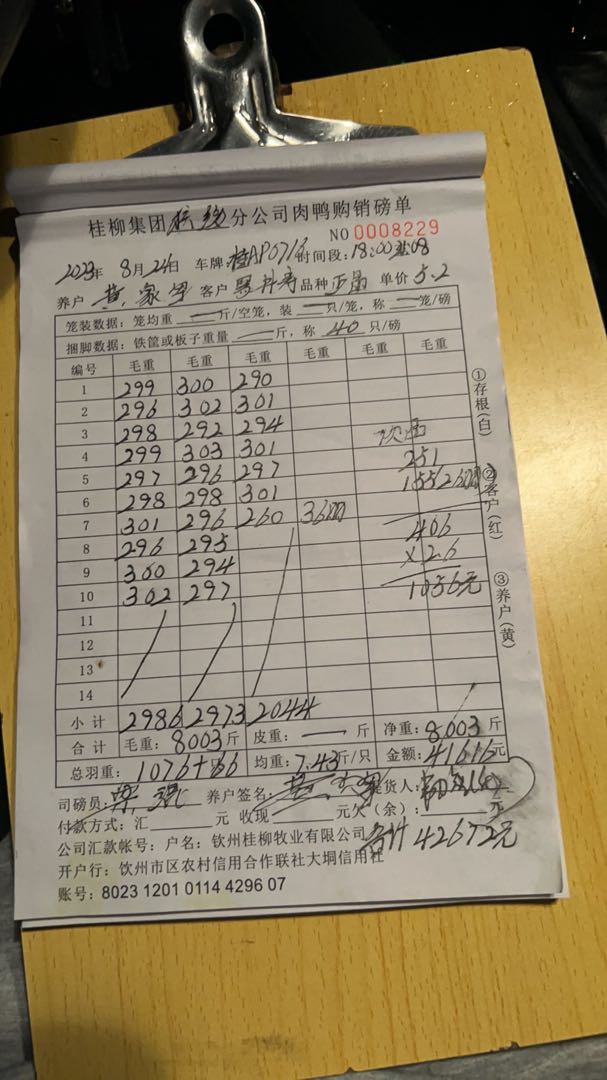 桂柳集团 分公司肉鸭购销磅单
NO 0008229
2023年 8月24日 车牌:桂AP0716 时间段:18:00
养户 黄家军 客户 品种 正品 单价 5.2
笼装数据:笼均重 — 斤/空笼,装 — 只/笼,称 — 笼/磅
捆脚数据:铁筐或板子重量 — 斤,称 40 只/磅
编号 毛重 毛重 毛重 毛重 毛重 毛重
1 299 300 290
2 296 302 301
3 298 292 294
4 299 303 301 次品
5 297 296 297 251
6 298 298 301 155
7 301 296 260 36只 406
8 296 295 ×2.6
9 300 294 1056元
10 302 297
11
12
13
14
小计 2986 2973 2044
合计 毛重:8003斤 皮重:— 斤 净重:8003斤
总羽重:1076+ 均重:7.43斤/只 金额:41616元
司磅员: 养户签名: 提货人:
付款方式:汇 元 收现 元欠(余): 元
公司汇款帐号:户名:钦州桂柳牧业有限公司 合计42672元
开户行:钦州市区农村信用合作联社大垌信用社
账号:8023 1201 0114 4296 07
①存根(白)
②客户(红)
③养户(黄)